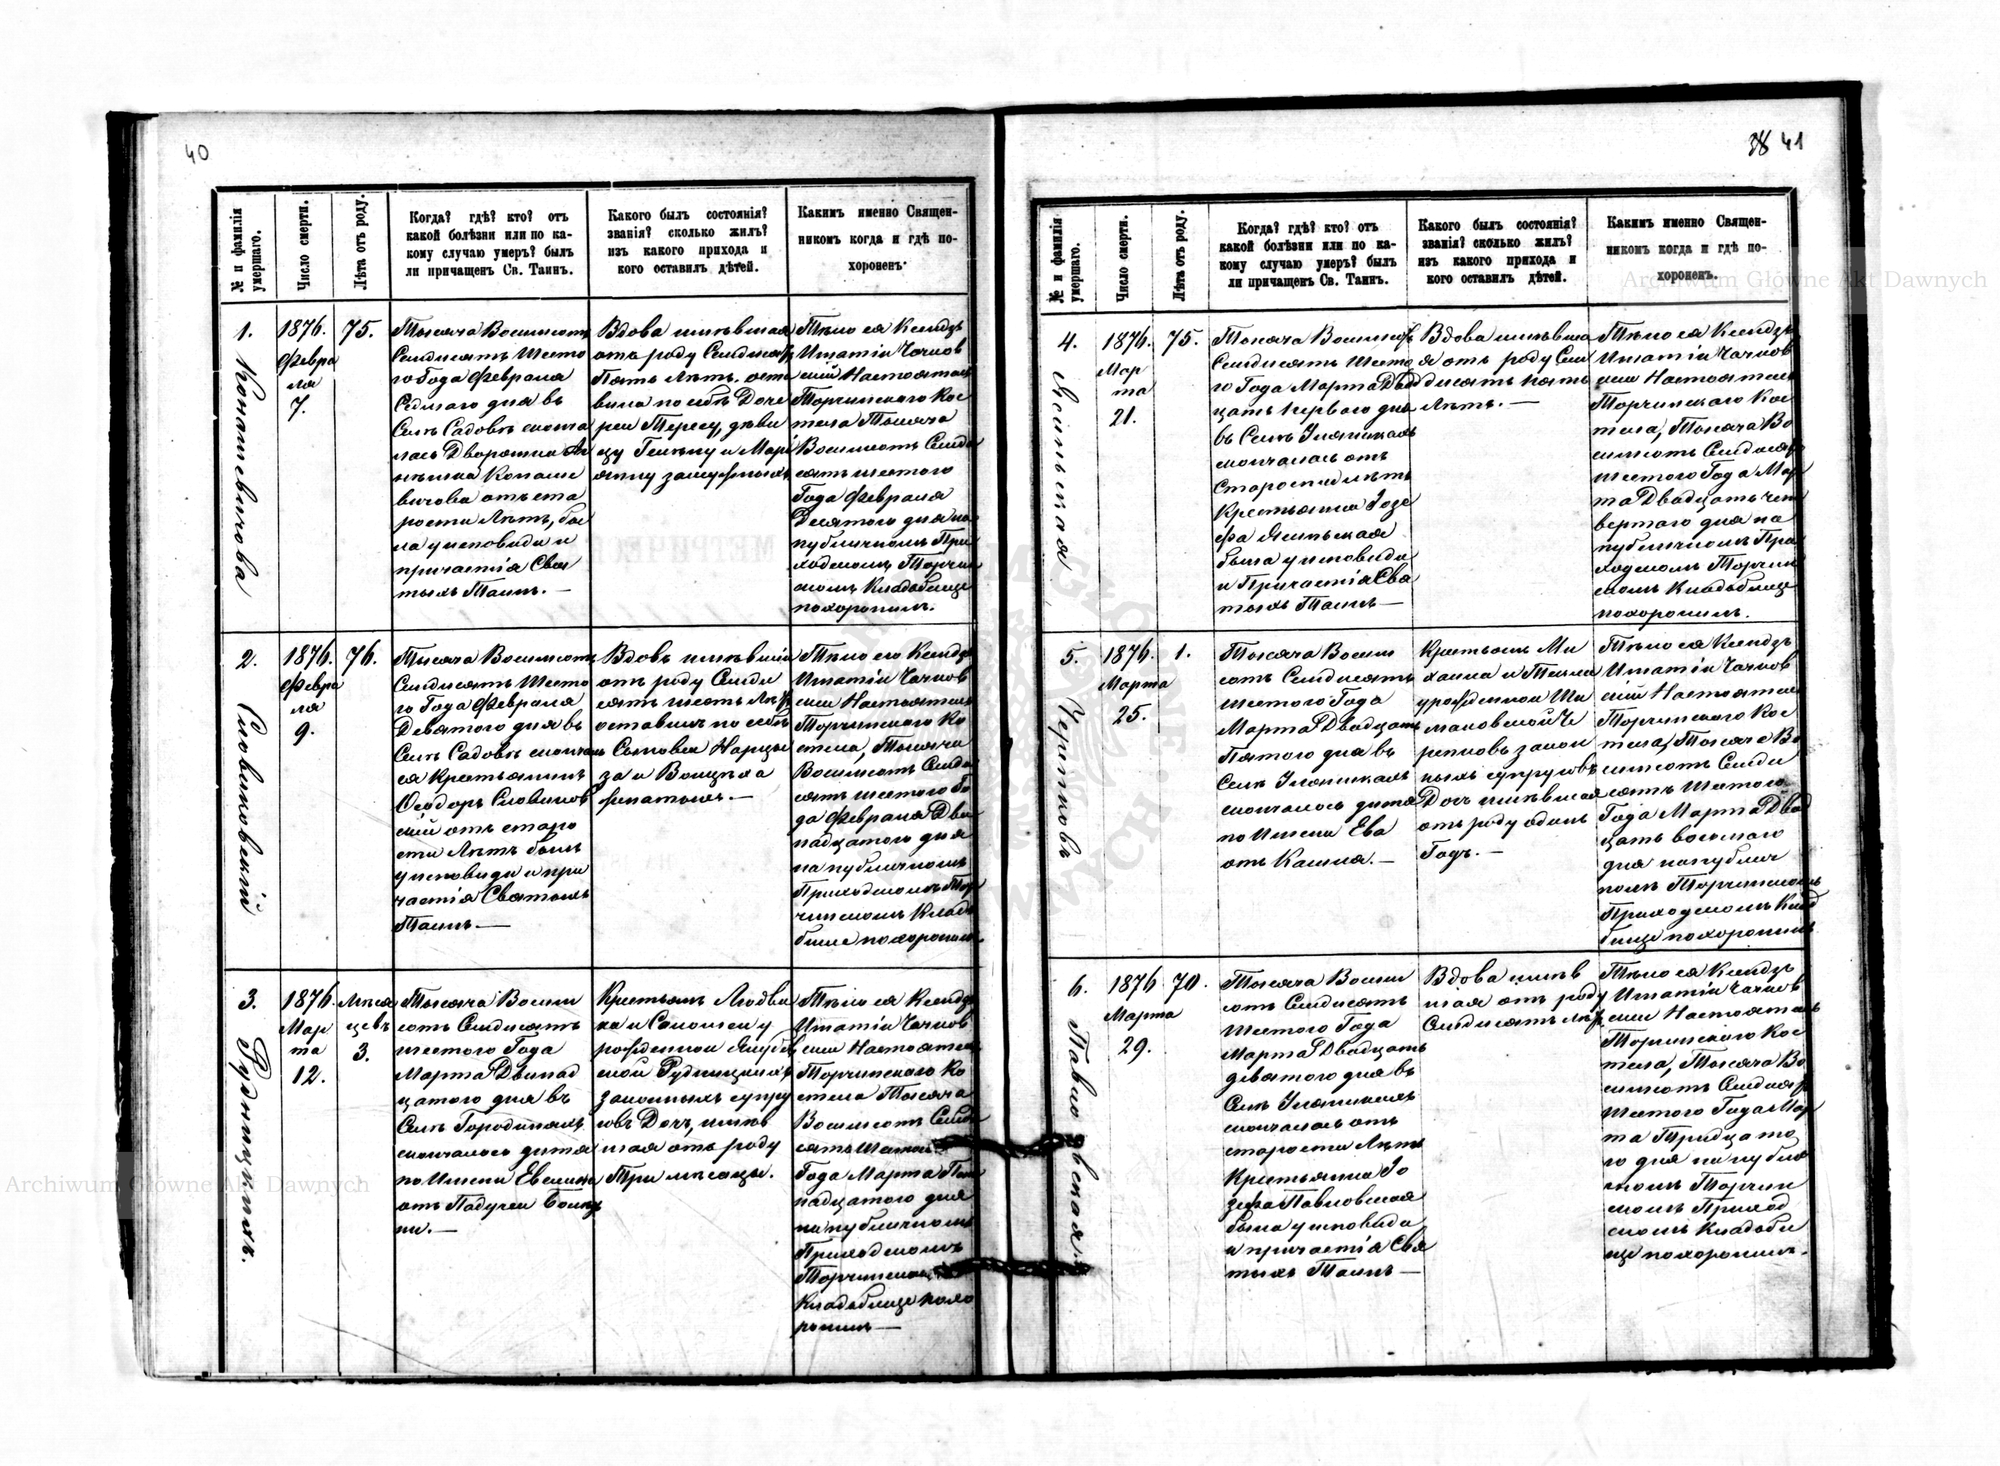 40
№ и фамилія умершаго.
Число смерти.
Лѣта отъ роду.
Когда? гдѣ? кто? отъ
какой болѣзни или по ка-
кому случаю умеръ? былъ
ли причащенъ Св. Таинъ.
Какого былъ состоянія?
званія? сколько жилъ?
изъ какого прихода и
кого оставилъ дѣтей.
Какимъ именно Священ-
никомъ когда и гдѣ по-
хороненъ.
1.
Конашевичова
1876.
Февра
ля
7.
75.
Тысяча Восемсотъ
Семдисятъ Шесто
го Года Февраля
Седмаго дня въ
Селѣ Садовѣ сконча
лась Дворянка Аг
нѣшка Конаше
вичова отъ ста
рости Лѣтъ, бы
ла у исповиди и
причастія Свя
тыхъ Таинъ. —
Вдова имѣвшая
отъ роду Семдисят
Пять Лѣтъ. оста
вила по себѣ Доче
рей Тересу, дѣви
цу Гелену и Марі
анну замужныхъ
Тѣло ея Ксендзъ
Игнатій Чачков
скій Настоятель
Торчинскаго Кос
тела Тысяча
Восемсотъ Семди
сятъ шестого
Года Февраля
Десятого дня на
публичномъ При
ходскомъ Торчин
скомъ Кладбище
похоронилъ.
2.
Словиковскій
1876.
Февра
ля
9.
76.
Тысяча Восемсотъ
Семдисятъ Шесто
го Года Февраля
Девятого дня въ
Селѣ Садовѣ скончал
ся Крестьянинъ
Ѳеодоръ Словиков
скій отъ старо
сти Лѣтъ былъ
у исповиди и при
частія Святыхъ
Таинъ —
Вдовъ имѣвшій
отъ роду Семди
сятъ шесть Лѣтъ
оставилъ по себѣ
Сыновея Нарцы
за и Войцѣха
женатыхъ. —
Тѣло его Ксендзъ
Игнатій Чачков
скій Настоятель
Торчинского Ко
стела, Тысяча
Восемсотъ Семди
сятъ шестого Го
да Февраля Две
надцатого дня
на публичномъ
Приходскомъ Тор
чинскомъ Клад
бище похоронилъ
3.
Рудницкихъ.
1876.
Мар
та
12.
Мѣся
цевъ
3.
Тысяча Восем
сотъ Семдисятъ
шестого Года
Марта Двенад
цатого дня въ
Селѣ Городинахъ
скончалось дитя
по Имени Евелина
отъ Падучей Болез
ни. —
Крестьянъ Людви
ка и Саломеи у
рожденной Якубов
ской Рудницкихъ
законныхъ супру
говъ Дочь, имѣв
шая отъ роду
Три мѣсяцы.
Тѣло ея Ксендзъ
Игнатій Чачков
скій Настоятель
Торчинского Ко
стела Тысяча
Восемсотъ Семди
сятъ Шестого
Года Марта Пят
надцатого дня
на публичномъ
Приходскомъ
Торчинскомъ
Кладбище похо
ронилъ —
38 41
№ и фамилія умершаго.
Число смерти.
Лѣта отъ роду.
Когда? гдѣ? кто? отъ
какой болѣзни или по ка-
кому случаю умеръ? былъ
ли причащенъ Св. Таинъ.
Какого былъ состоянія?
званія? сколько жилъ?
изъ какого прихода и
кого оставилъ дѣтей.
Какимъ именно Священ-
никомъ когда и гдѣ по-
хороненъ.
4.
1876.
Мар
та
21.
75.
Тысяча Восемсот
Семдисятъ Шесто
го Года Марта Двад
цать Первого дня
въ Селѣ Уляникахъ
скончалась отъ
Старости лѣтъ
Крестьянка Іозе
фа
была у исповиди
и Причастія Свя
тыхъ Таинъ —
Вдова имѣвша
я отъ роду Сем
дисятъ пять
Лѣтъ. —
Тѣло ея Ксендзъ
Игнатій Чачков
скій Настоятель
Торчинскаго Кос
тела, Тысяча Во
семсотъ Семдисят
шестого Года Мар
та Двадцать чет
вертаго дня на
публичномъ При
ходскомъ Торчин
скомъ Кладбище
похоронилъ.
5.
Черпковъ
1876.
Марта
25.
1.
Тысяча Восем
сотъ Семдисятъ
шестого Года
Марта Двадцать
Пятого дня въ
Селѣ Уляникахъ
скончалось дитя
по Имени Ева
отъ Кашля. —
Крестьянъ Ми
хаила и Теклы
урожденной Ши
мановской Че
рпковъ закон
ныхъ супруговъ
Дочь имѣвшая
отъ роду одинъ
Годъ. —
Тѣло ея Ксендзъ
Игнатій Чачков
скій Настоятель
Торчинского Кос
тела, Тысяча Во
семсотъ Семди
сятъ Шестого
Года Марта Двад
цать восьмого
дня на публич
номъ Торчинскомъ
Приходскомъ Клад
бище похоронилъ
6.
Павловская.
1876
Марта
29.
70.
Тысяча Восем
сотъ Семдисятъ
Шестого Года
Марта Двадцать
девятого дня въ
Селѣ Уляникахъ
скончалась отъ
старости Лѣтъ
Крестьянка Іо
зефа Павловская
была у исповиди
и причастія Свя
тыхъ Таинъ —
Вдова имѣв
шая отъ роду
Семдисятъ лѣт
Тѣло ея Ксендзъ
Игнатій Чачков
скій Настоятель
Торчинского Кос
тела, Тысяча Во
семсотъ Семдисят
Шестого Года Мар
та Тридцато
го дня на публи
чномъ Торчин
скомъ Приход
скомъ Кладби
ще похоронилъ.
Archiwum Główne Akt Dawnych
Archiwum Główne Akt Dawnych